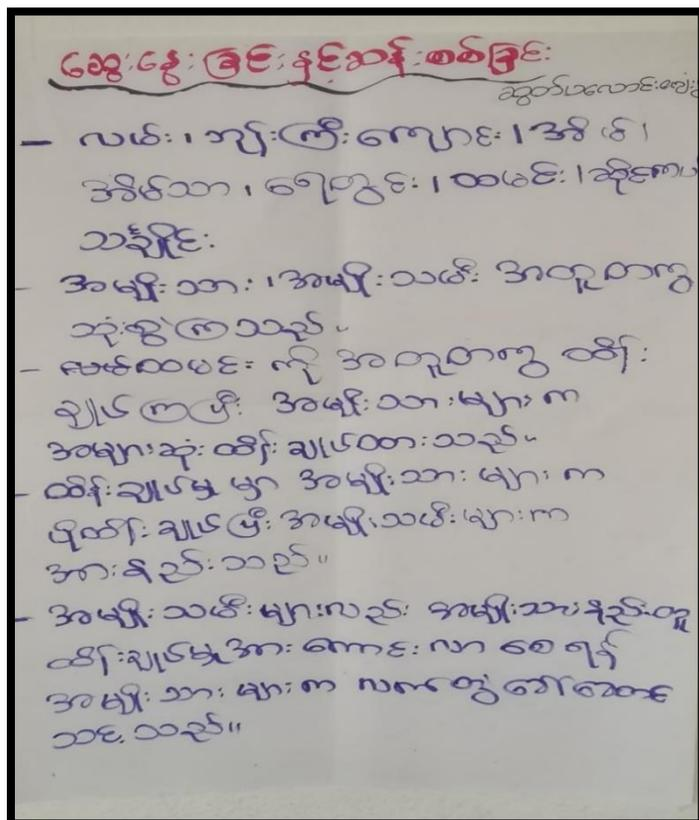 ဆွေးနွေးခြင်းနှင့်ဆန်းစစ်ခြင်း
ဆွတ်ပလောင်းကျေး
- လမ်း၊ ဘုန်းကြီးကျောင်း၊ အိမ်၊
အိမ်သာ၊ ရေတွင်း၊ ထမင်း၊ ဆိုင်ကယ်
သင်္ချိုင်း
- အမျိုးသား၊ အမျိုးသမီး အတူတကွ
သုံးစွဲကြသည်။
- အတူတကွ ထိန်း
ချုပ်ကြပြီး အမျိုးသားများက
အများဆုံးထိန်းချုပ်ထားသည်။
- ထိန်းချုပ်မှုမှာ အမျိုးသားများက
ပိုထိန်းချုပ်ပြီး အမျိုးသမီးများက
အားနည်းသည်။
- အမျိုးသမီးများလည်း အမျိုးသားနည်းတူ
ထိန်းချုပ်မှုအားကောင်းလာစေရန်
အမျိုးသားများက လက်တွဲခေါ်ဆောင်
သင့်သည်။